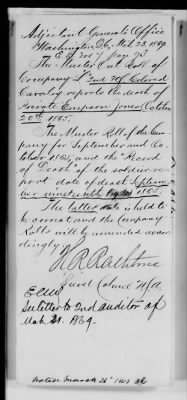 Adjutant General's Office
Washington D.C. Mch 23, 1869.
The Muster Out Roll of
Company L 2nd Colored
Cavalry reports the death of
Private Emperor Jones October
20th 1865.
The Muster Roll of the Com-
pany for September and Oc-
tober 1865, and the Record
of Death of the soldier re-
port date of death September
1865.
The latter date is held to
be correct and the Company
Rolls will be amended accor-
dingly.
to 2nd auditor of
Mch 24, 1869.
Noted March 26th